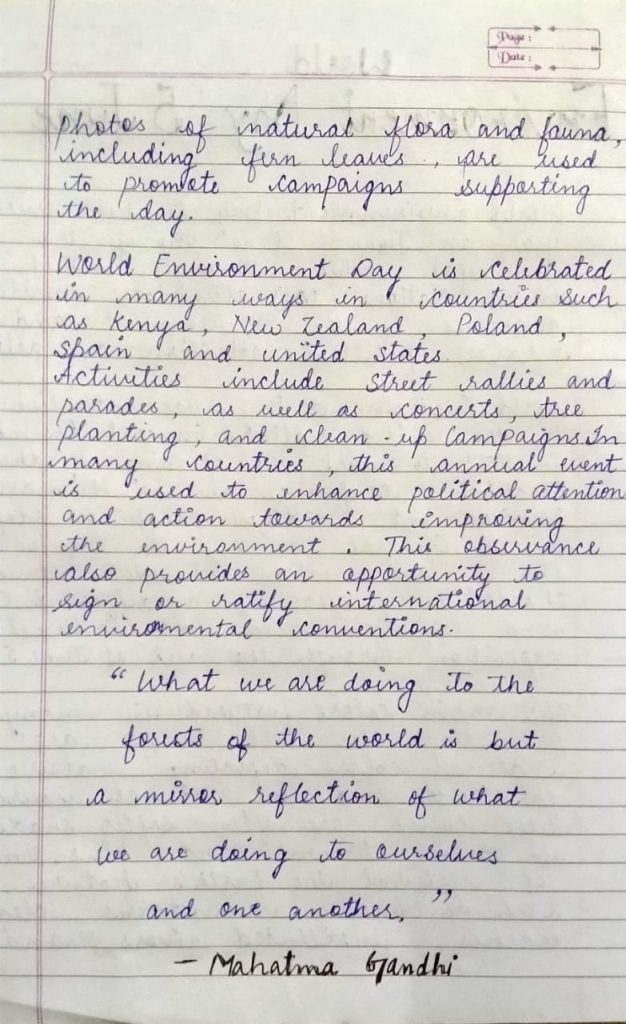 Page :
Date :
photos of natural flora and fauna,
including fern leaves, are used
to promote campaigns supporting
the day.
World Environment Day is celebrated
in many ways in countries such
as Kenya, New Zealand, Poland,
Spain and united states.
Activities include street rallies and
parades, as well as concerts, tree
planting, and clean-up campaigns. In
many countries, this annual event
is used to enhance political attention
and action towards improving
the environment. This observance
also provides an opportunity to
sign or ratify international
enviromental conventions.
“What we are doing to the
forests of the world is but
a mirror reflection of what
we are doing to ourselves
and one another,”
- Mahatma Gandhi